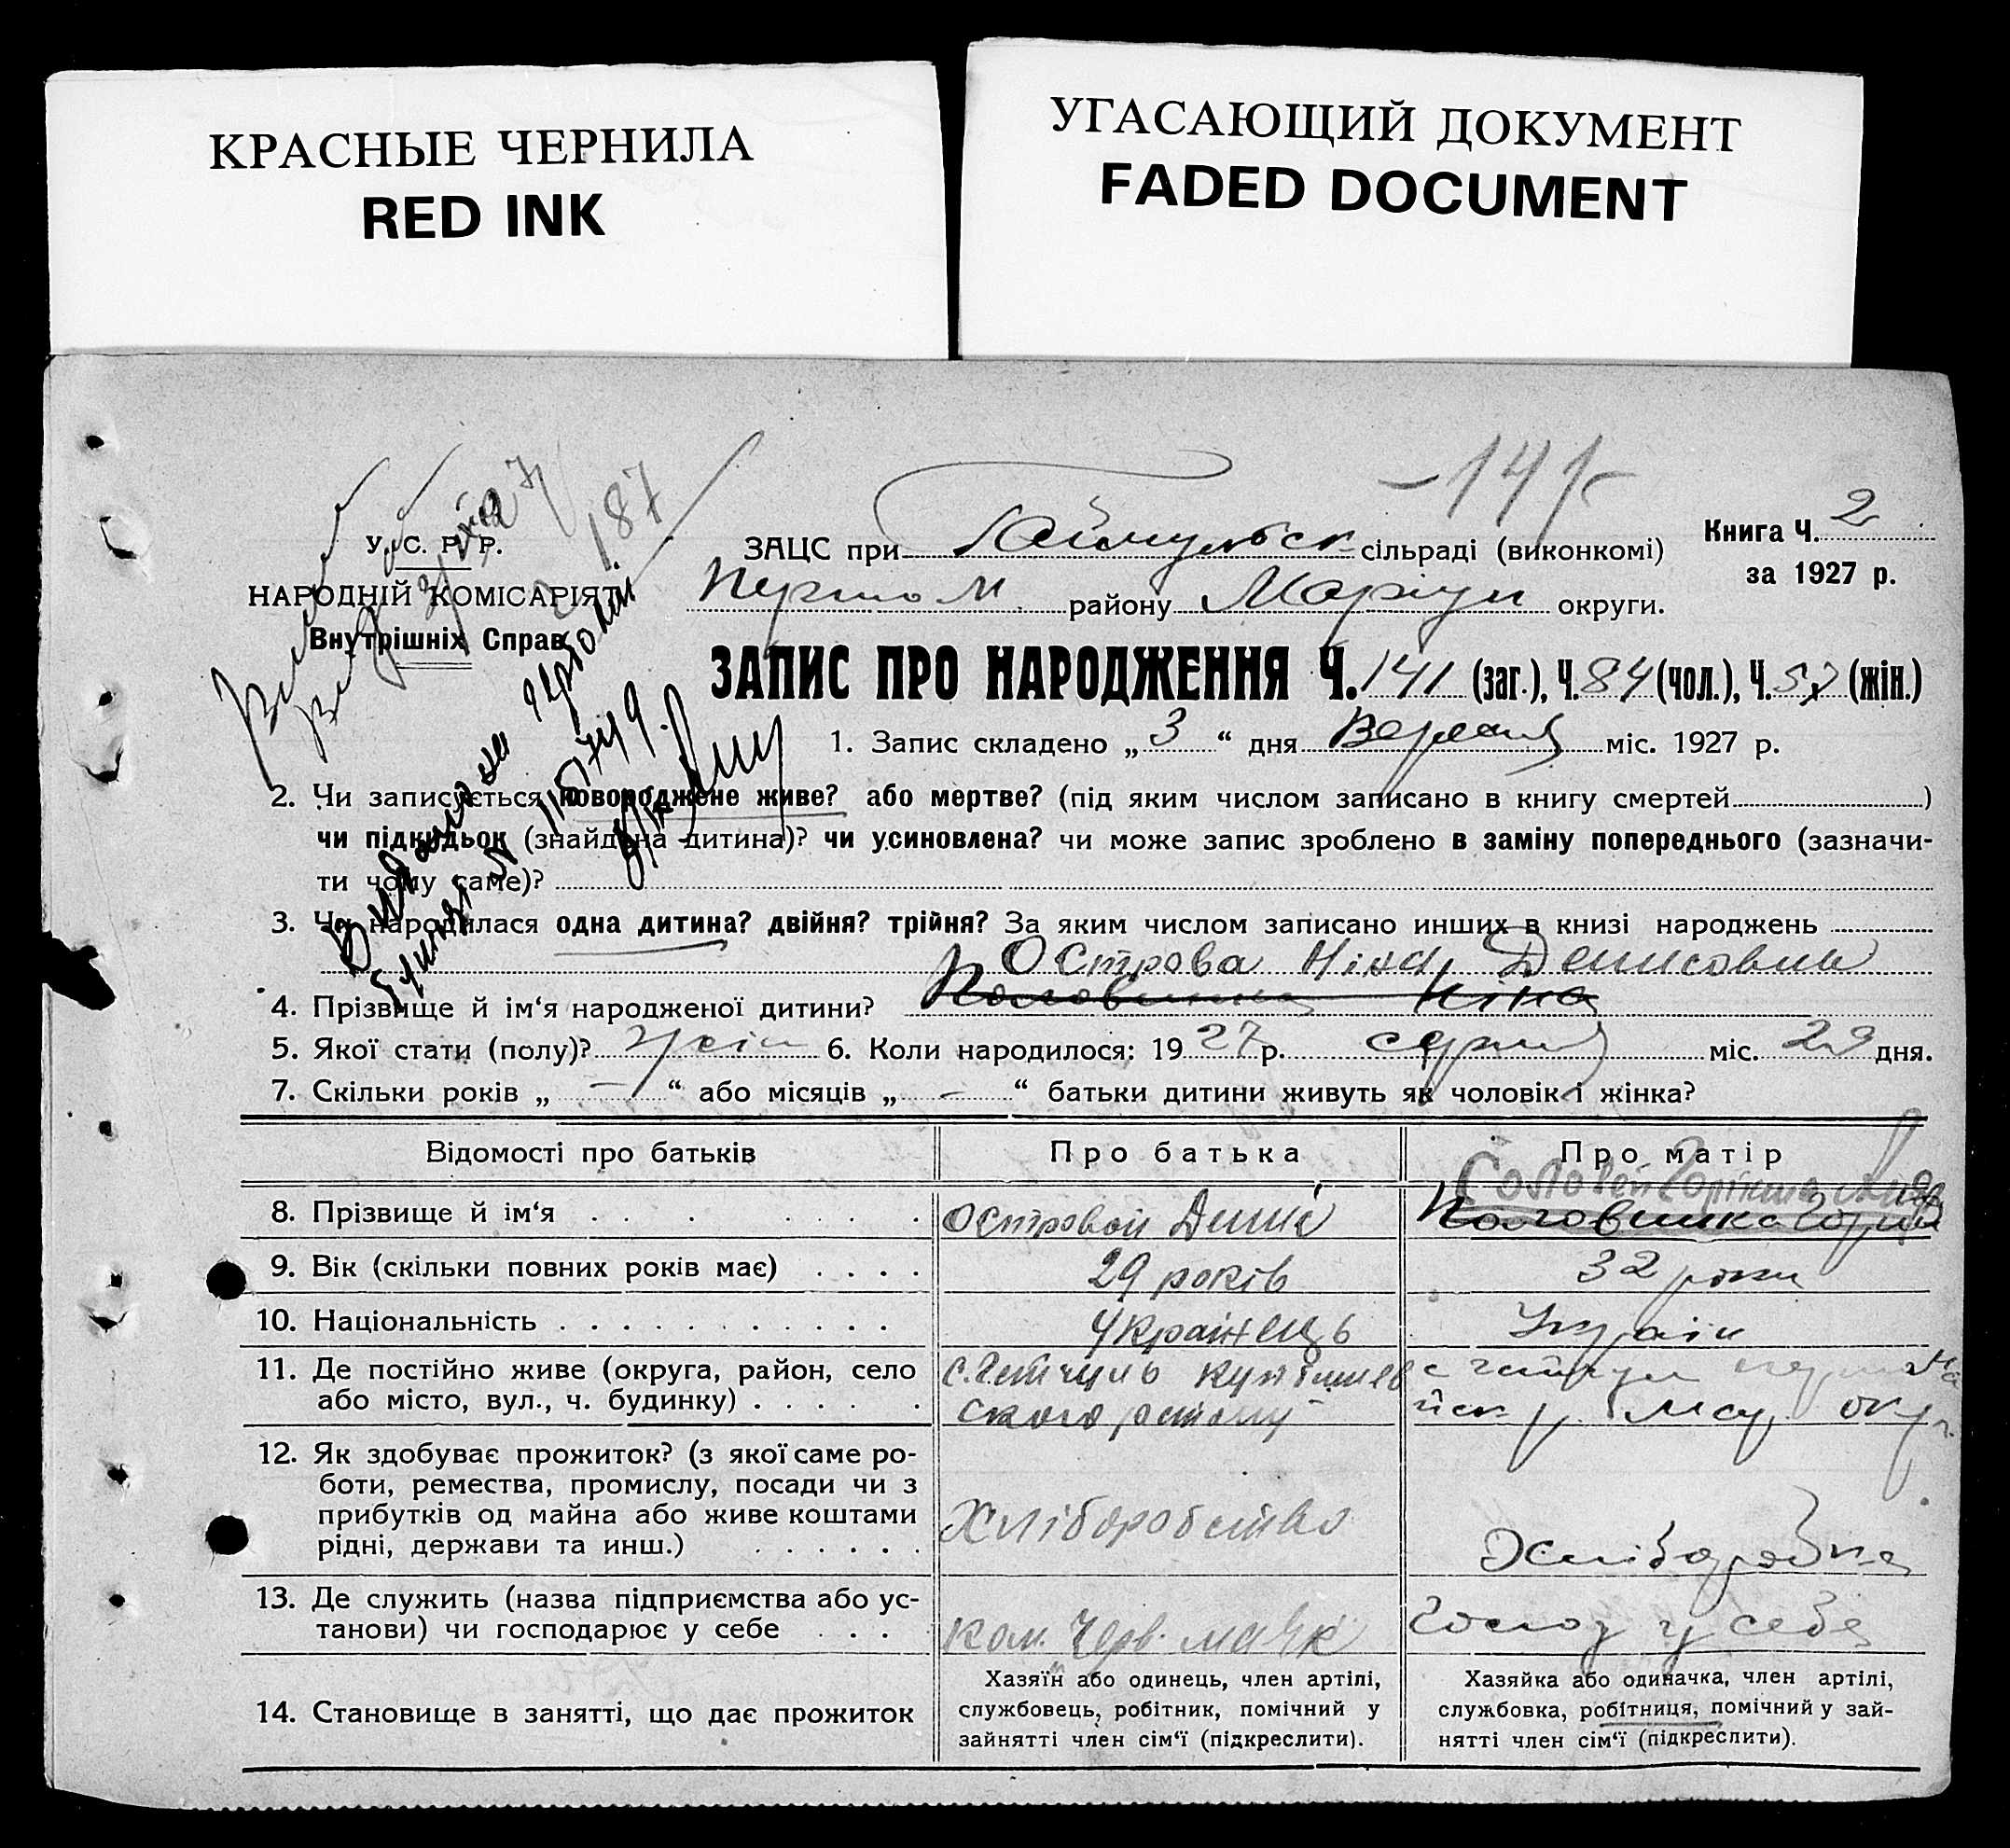 КРАСНЫЕ ЧЕРНИЛА
RED INK
УГАСАЮЩИЙ ДОКУМЕНТ
FADED DOCUMENT
-141-
187
У. С. Р. Р.
НАРОДНІЙ КОМІСАРІЯТ
Внутрішніх Справ
ЗАЦС при сільраді (виконкомі)
Книга Ч. 2
за 1927 р.
Першом. району Маріуп округи.
ЗАПИС ПРО НАРОДЖЕННЯ Ч. 141 (заг.), Ч. 84 (чол.), Ч. 57 (жін.)
1. Запис складено „ 3 “ дня Вересня міс. 1927 р.
2. Чи записується новороджене живе? або мертве? (під яким числом записано в книгу смертей )
чи підкидьок (знайдена дитина)? чи усиновлена? чи може запис зроблено в заміну попереднього (зазначи-
ти чому саме)?
3. Чи народилася одна дитина? двійня? трійня? За яким числом записано инших в книзі народжень
Острова Ніна Денисовна
4. Прізвище й ім‘я народженої дитини? Половинка Ніна
5. Якої стати (полу)? жін 6. Коли народилося: 19 27 р. серпня міс. 29 дня.
7. Скільки років „ — “ або місяців „ — “ батьки дитини живуть як чоловік і жінка?
Відомості про батьків Про батька Про матір
Соловей
8. Прізвище й ім‘я Островой Денис Половинка
9. Вік (скільки повних років має) 29 років 32 роки
10. Національність Українець Україн
11. Де постійно живе (округа, район, село
або місто, вул., ч. будинку)
12. Як здобуває прожиток? (з якої саме ро-
боти, ремества, промислу, посади чи з
прибутків од майна або живе коштами
рідні, держави та инш.)
Хліборобство Хліборобка
13. Де служить (назва підприємства або ус-
танови) чи господарює у себе
ком. Черв. маяк Господ у себе
14. Становище в занятті, що дає прожиток
Хазяїн або одинець, член артілі,
службовець, робітник, помічний у
зайнятті член сім‘ї (підкреслити).
Хазяйка або одиначка, член артілі,
службовка, робітниця, помічний у зай-
нятті член сім‘ї (підкреслити).